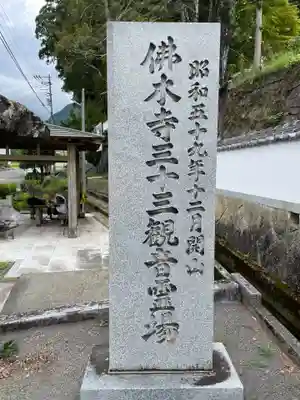 昭和五十九年十二月開山
佛木寺三十三観音霊場